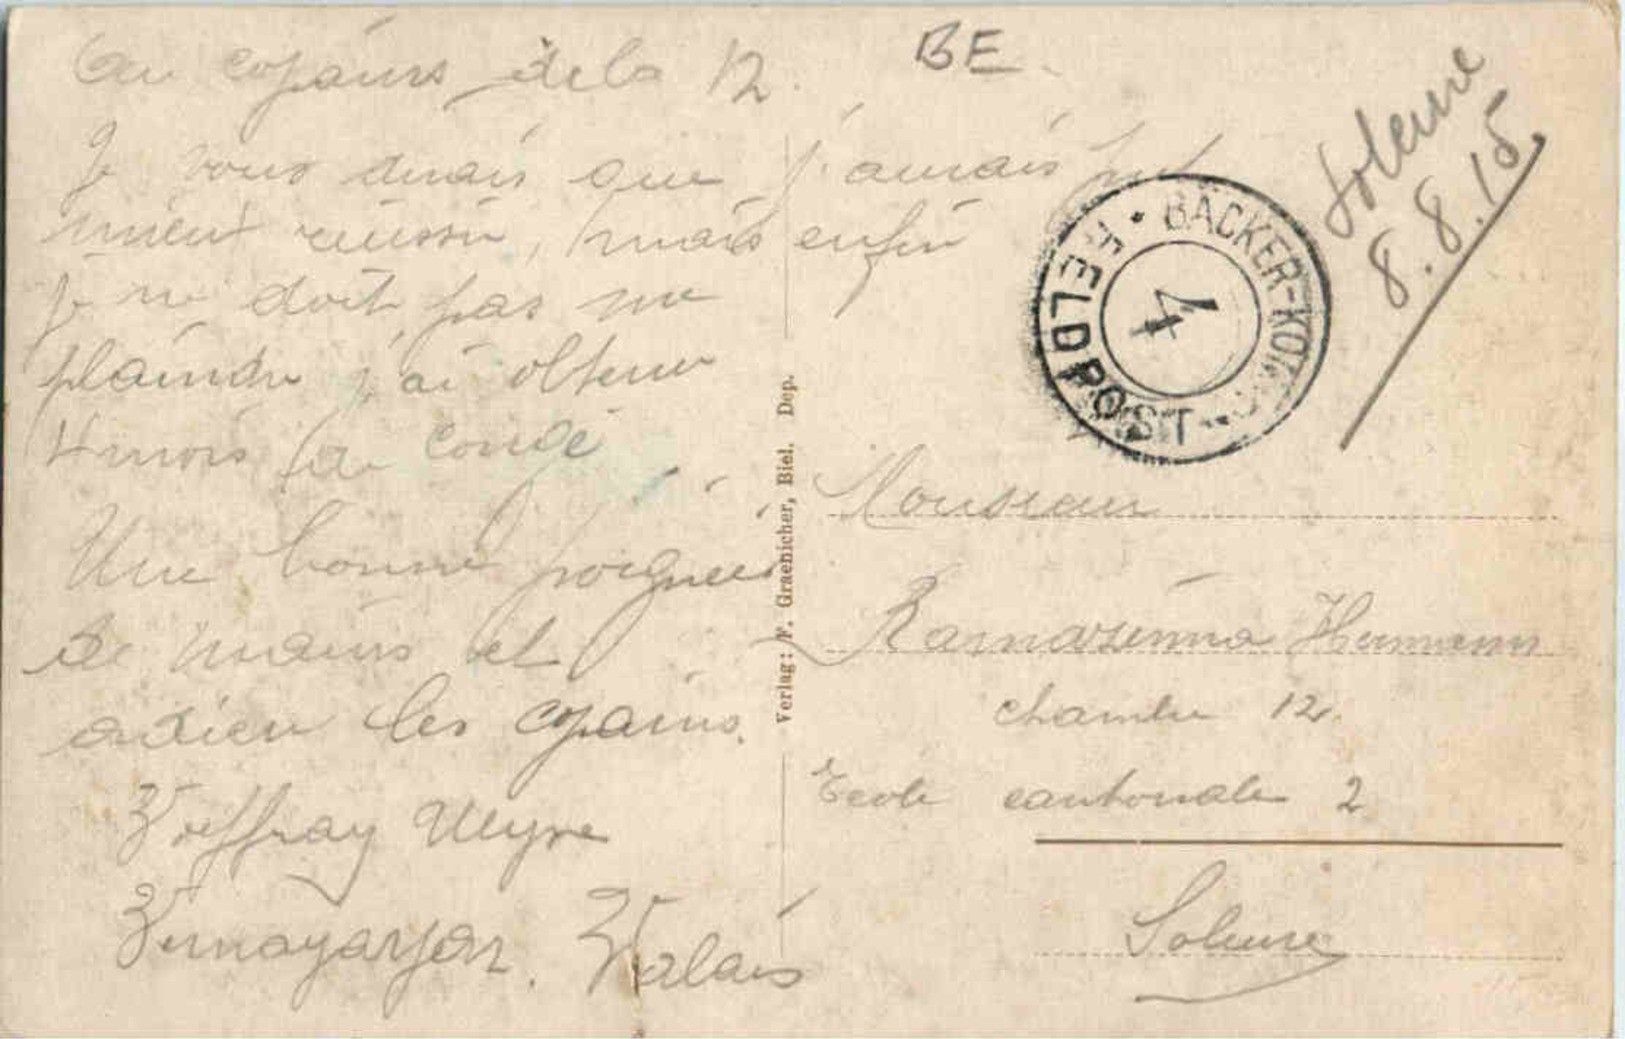 Au copains de la 12.
Je vous dirais que j'aurais put
mieux réussir, mais enfin
je ne doit pas me
plaindre j'ai obtenu
4 mois de congé
Une bonne poignée
de mains et
adieu les copains.
Voeffray Ulysse
Vernayaz. Valais
BE
Soleure
8.8.15
BÄCKER-KOMP.
FELDPOST
4
Verlag: F. Graenicher, Biel. Dep.
Monsieur
Hermann
chambre 12.
Ecole cantonale 2
Soleure